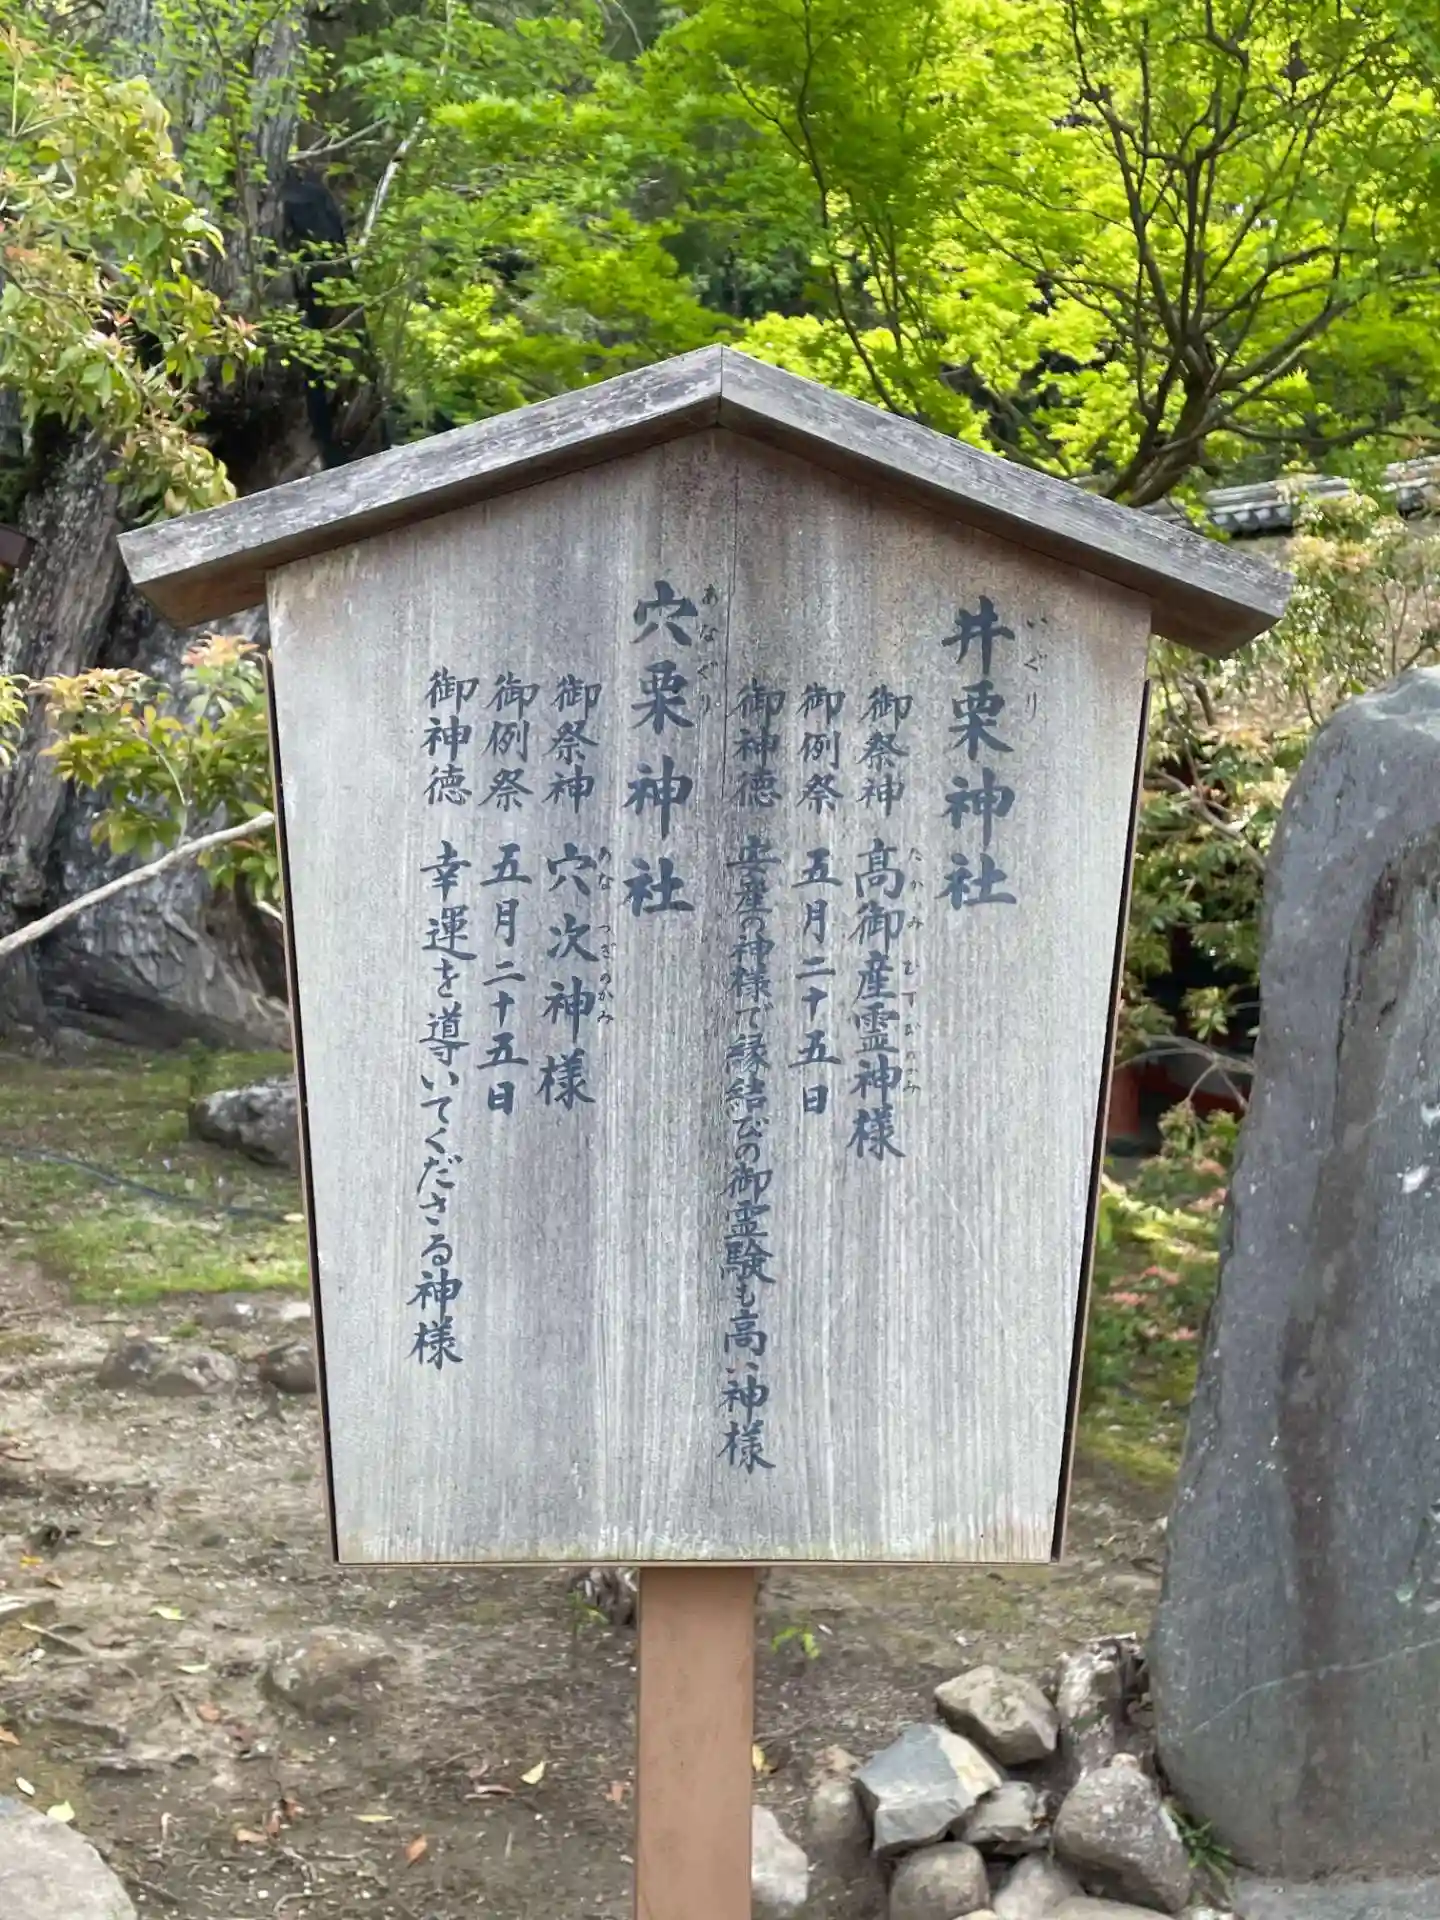 井栗神社
いぐり
御祭神 高御産霊神様
たかみむすびのかみ
御例祭 五月二十五日
御神徳 安産の神様で縁結びの御霊験も高い神様
穴栗神社
あなぐり
御祭神 穴次神様
あなつぎのかみ
御例祭 五月二十五日
御神徳 幸運を導いてくださる神様